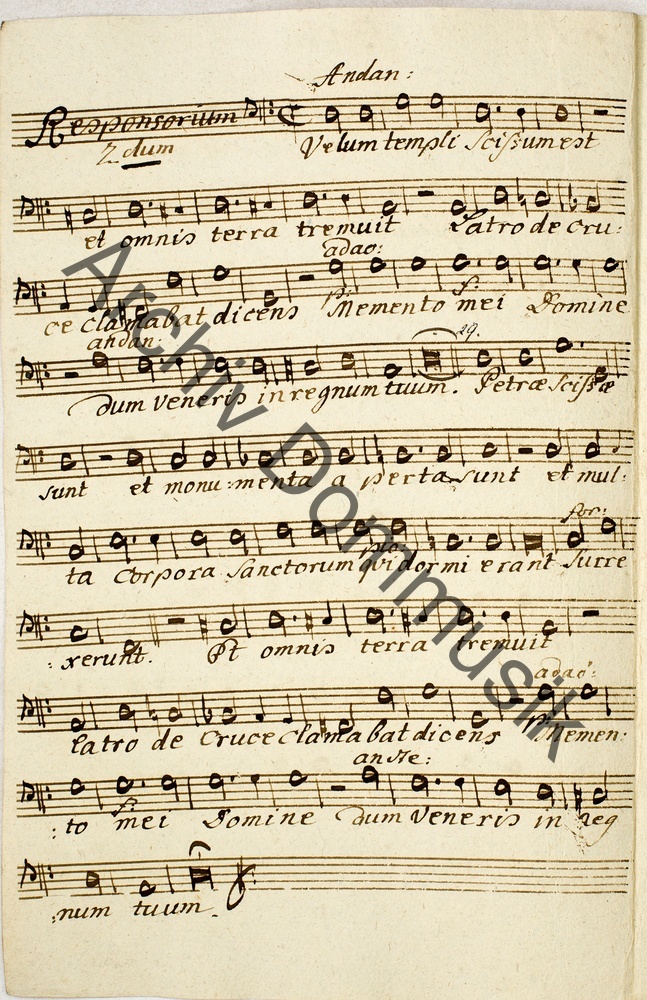 Andan:
Responsorium
2dum
Velum templi Scissum est
et omnis terra tremuit Latro de Cru:
adao:
pi
fi
ce clamabat dicens Memento mei Domine
andan:
29.
dum Veneris in regnum tuum. Petræ Scissæ
sunt et monu:menta a perta sunt et mul:
for:
pia:
ta Corpora Sanctorum qui dormi erant Surre
:xerunt. Et omnis terra tremuit
adao:
Latro de Cruce Clamabat dicens Memen:
anste:
fi
:to mei Domine dum Veneris in reg
:num tuum.
Archiv Dommusik